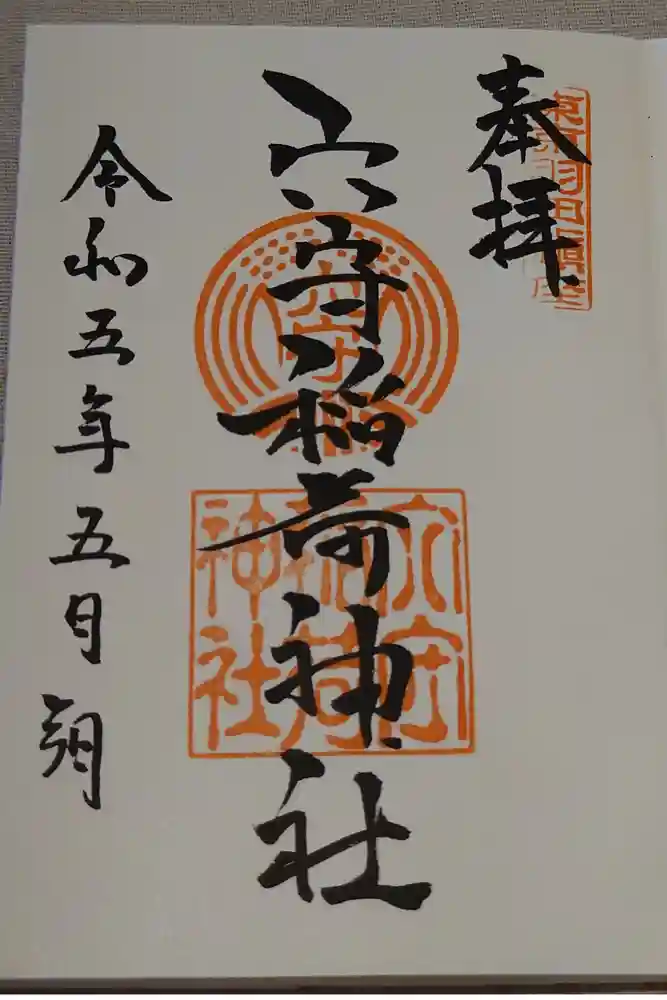 奉拝
東京羽田鎮座
穴守稲荷神社
穴守
穴守
稲荷
神社
令和五年五月朔